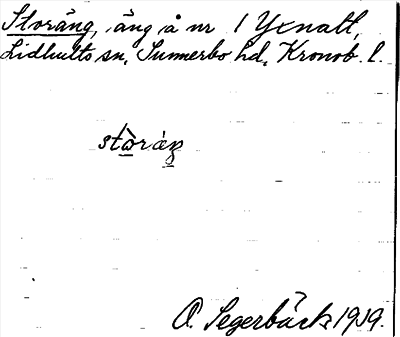 Storäng, äng å nr 1 Yxnalt,
Lidhults sn, Sunnerbo hd, Kronob. l.
stòràŋ
O. Segerbäck 1919.